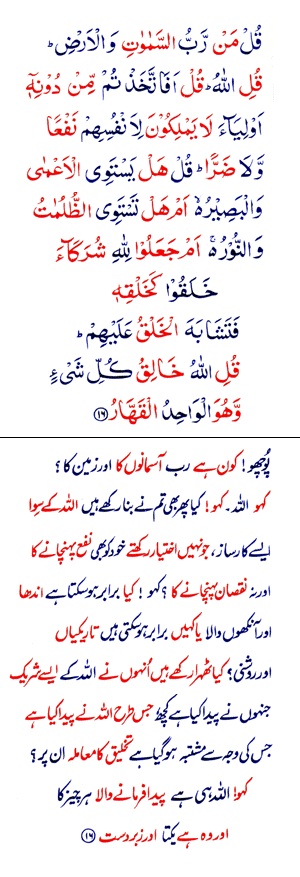 قُلْ مَنْ رَّبُّ السَّمٰوٰتِ وَالْاَرْضِ ؕ
قُلِ اللّٰهُ ؕ قُلْ اَفَاتَّخَذْتُمْ مِّنْ دُوْنِهٖۤ
اَوْلِيَآءَ لَا يَمْلِكُوْنَ لِاَنْفُسِهِمْ نَفْعًا
وَّلَا ضَرًّا ؕ قُلْ هَلْ يَسْتَوِى الْاَعْمٰى
وَالْبَصِيْرُ ۙ اَمْ هَلْ تَسْتَوِى الظُّلُمٰتُ
وَالنُّوْرُ ۚ اَمْ جَعَلُوْا لِلّٰهِ شُرَكَآءَ
خَلَقُوْا كَخَلْقِهٖ
فَتَشَابَهَ الْخَلْقُ عَلَيْهِمْ ؕ
قُلِ اللّٰهُ خَالِقُ كُلِّ شَىْءٍ
وَّهُوَ الْوَاحِدُ الْقَهَّارُ ﴿۱۶﴾
پُوچھو! کون ہے رب آسمانوں کا اور زمین کا؟
کہو اللہ۔ کہو! کیا پھر بھی تم نے بنا رکھے ہیں اللہ کے سِوا
ایسے کارساز، جو نہیں اختیار رکھتے خود کو بھی نفع پہنچانے کا
اور نہ نقصان پہنچانے کا؟ کہو! کیا برابر ہو سکتا ہے اندھا
اور آنکھوں والا یا کہیں برابر ہو سکتی ہیں تاریکیاں
اور روشنی؟ کیا ٹھہرا رکھے ہیں اُنہوں نے اللہ کے ایسے شریک
جنہوں نے پیدا کیا ہے کچھ جس طرح اللہ نے پیدا کیا ہے
جس کی وجہ سے مشتبہ ہو گیا ہے تخلیق کا معاملہ ان پر؟
کہو! اللہ ہی ہے پیدا فرمانے والا ہر چیز کا
اور وہ ہے یکتا اور زبردست ﴿۱۶﴾